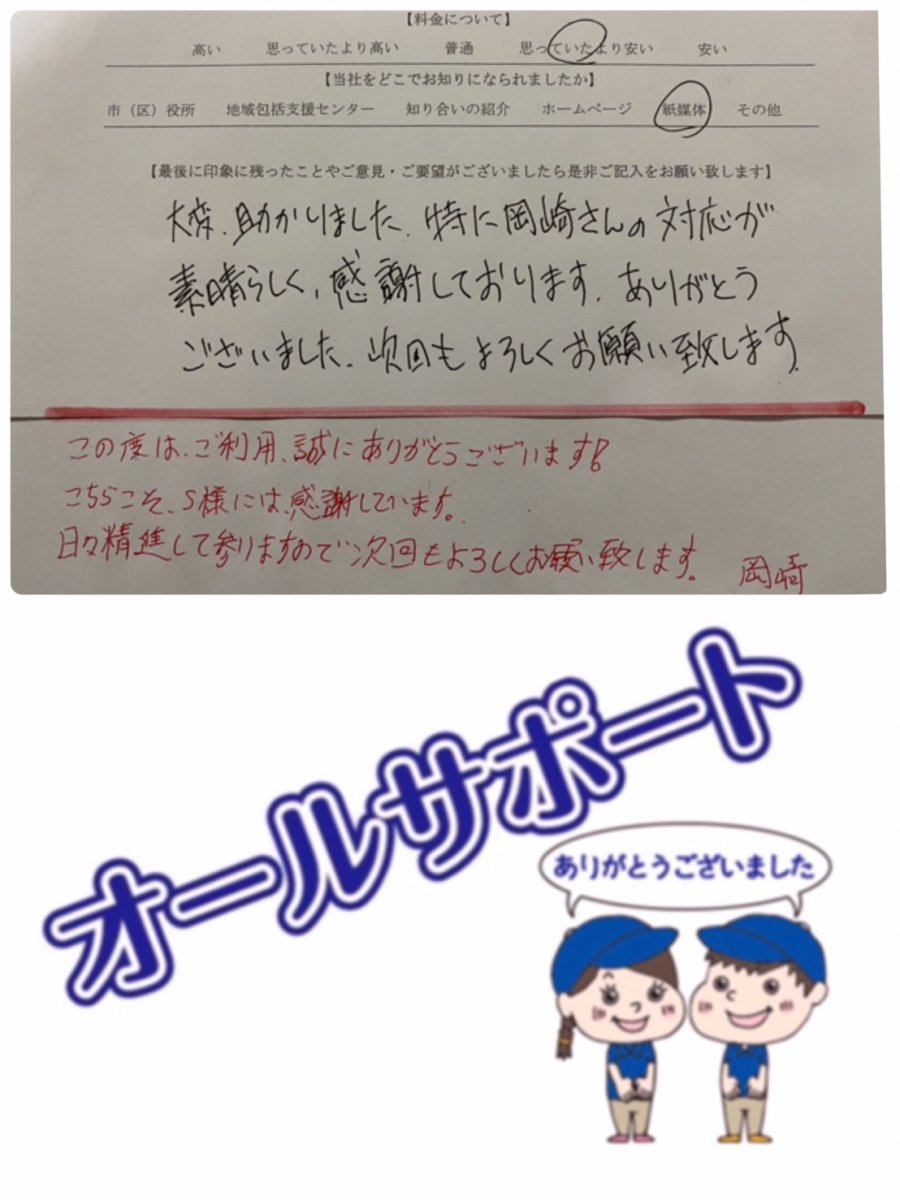 【料金について】
高い 思っていたより高い 普通 思っていたより安い 安い
【当社をどこでお知りになられましたか】
市（区）役所 地域包括支援センター 知り合いの紹介 ホームページ 紙媒体 その他
【最後に印象に残ったことやご意見・ご要望がございましたら是非ご記入をお願い致します】
大変、助かりました。特に岡崎さんの対応が
素晴らしく、感謝しております。ありがとう
ございました。次回もよろしくお願い致します。
この度は、ご利用、誠にありがとうございます!
こちらこそ、S様には、感謝しています。
日々精進して参りますので次回もよろしくお願い致します。 岡崎
オールサポート
ありがとうございました